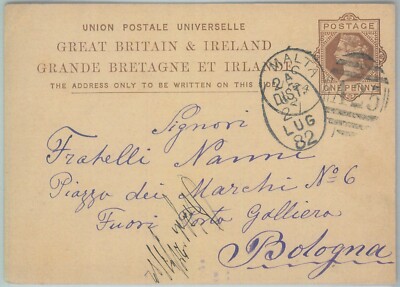 UNION POSTALE UNIVERSELLE
GREAT BRITAIN & IRELAND
GRANDE BRETAGNE ET IRLANDE
THE ADDRESS ONLY TO BE WRITTEN ON THIS
POSTAGE
ONE PENNY
MALTA
LUG
82
Signori
Fratelli Nanni
Piazza dei Marchi No 6
Fuori Porto Galliera
Bologna